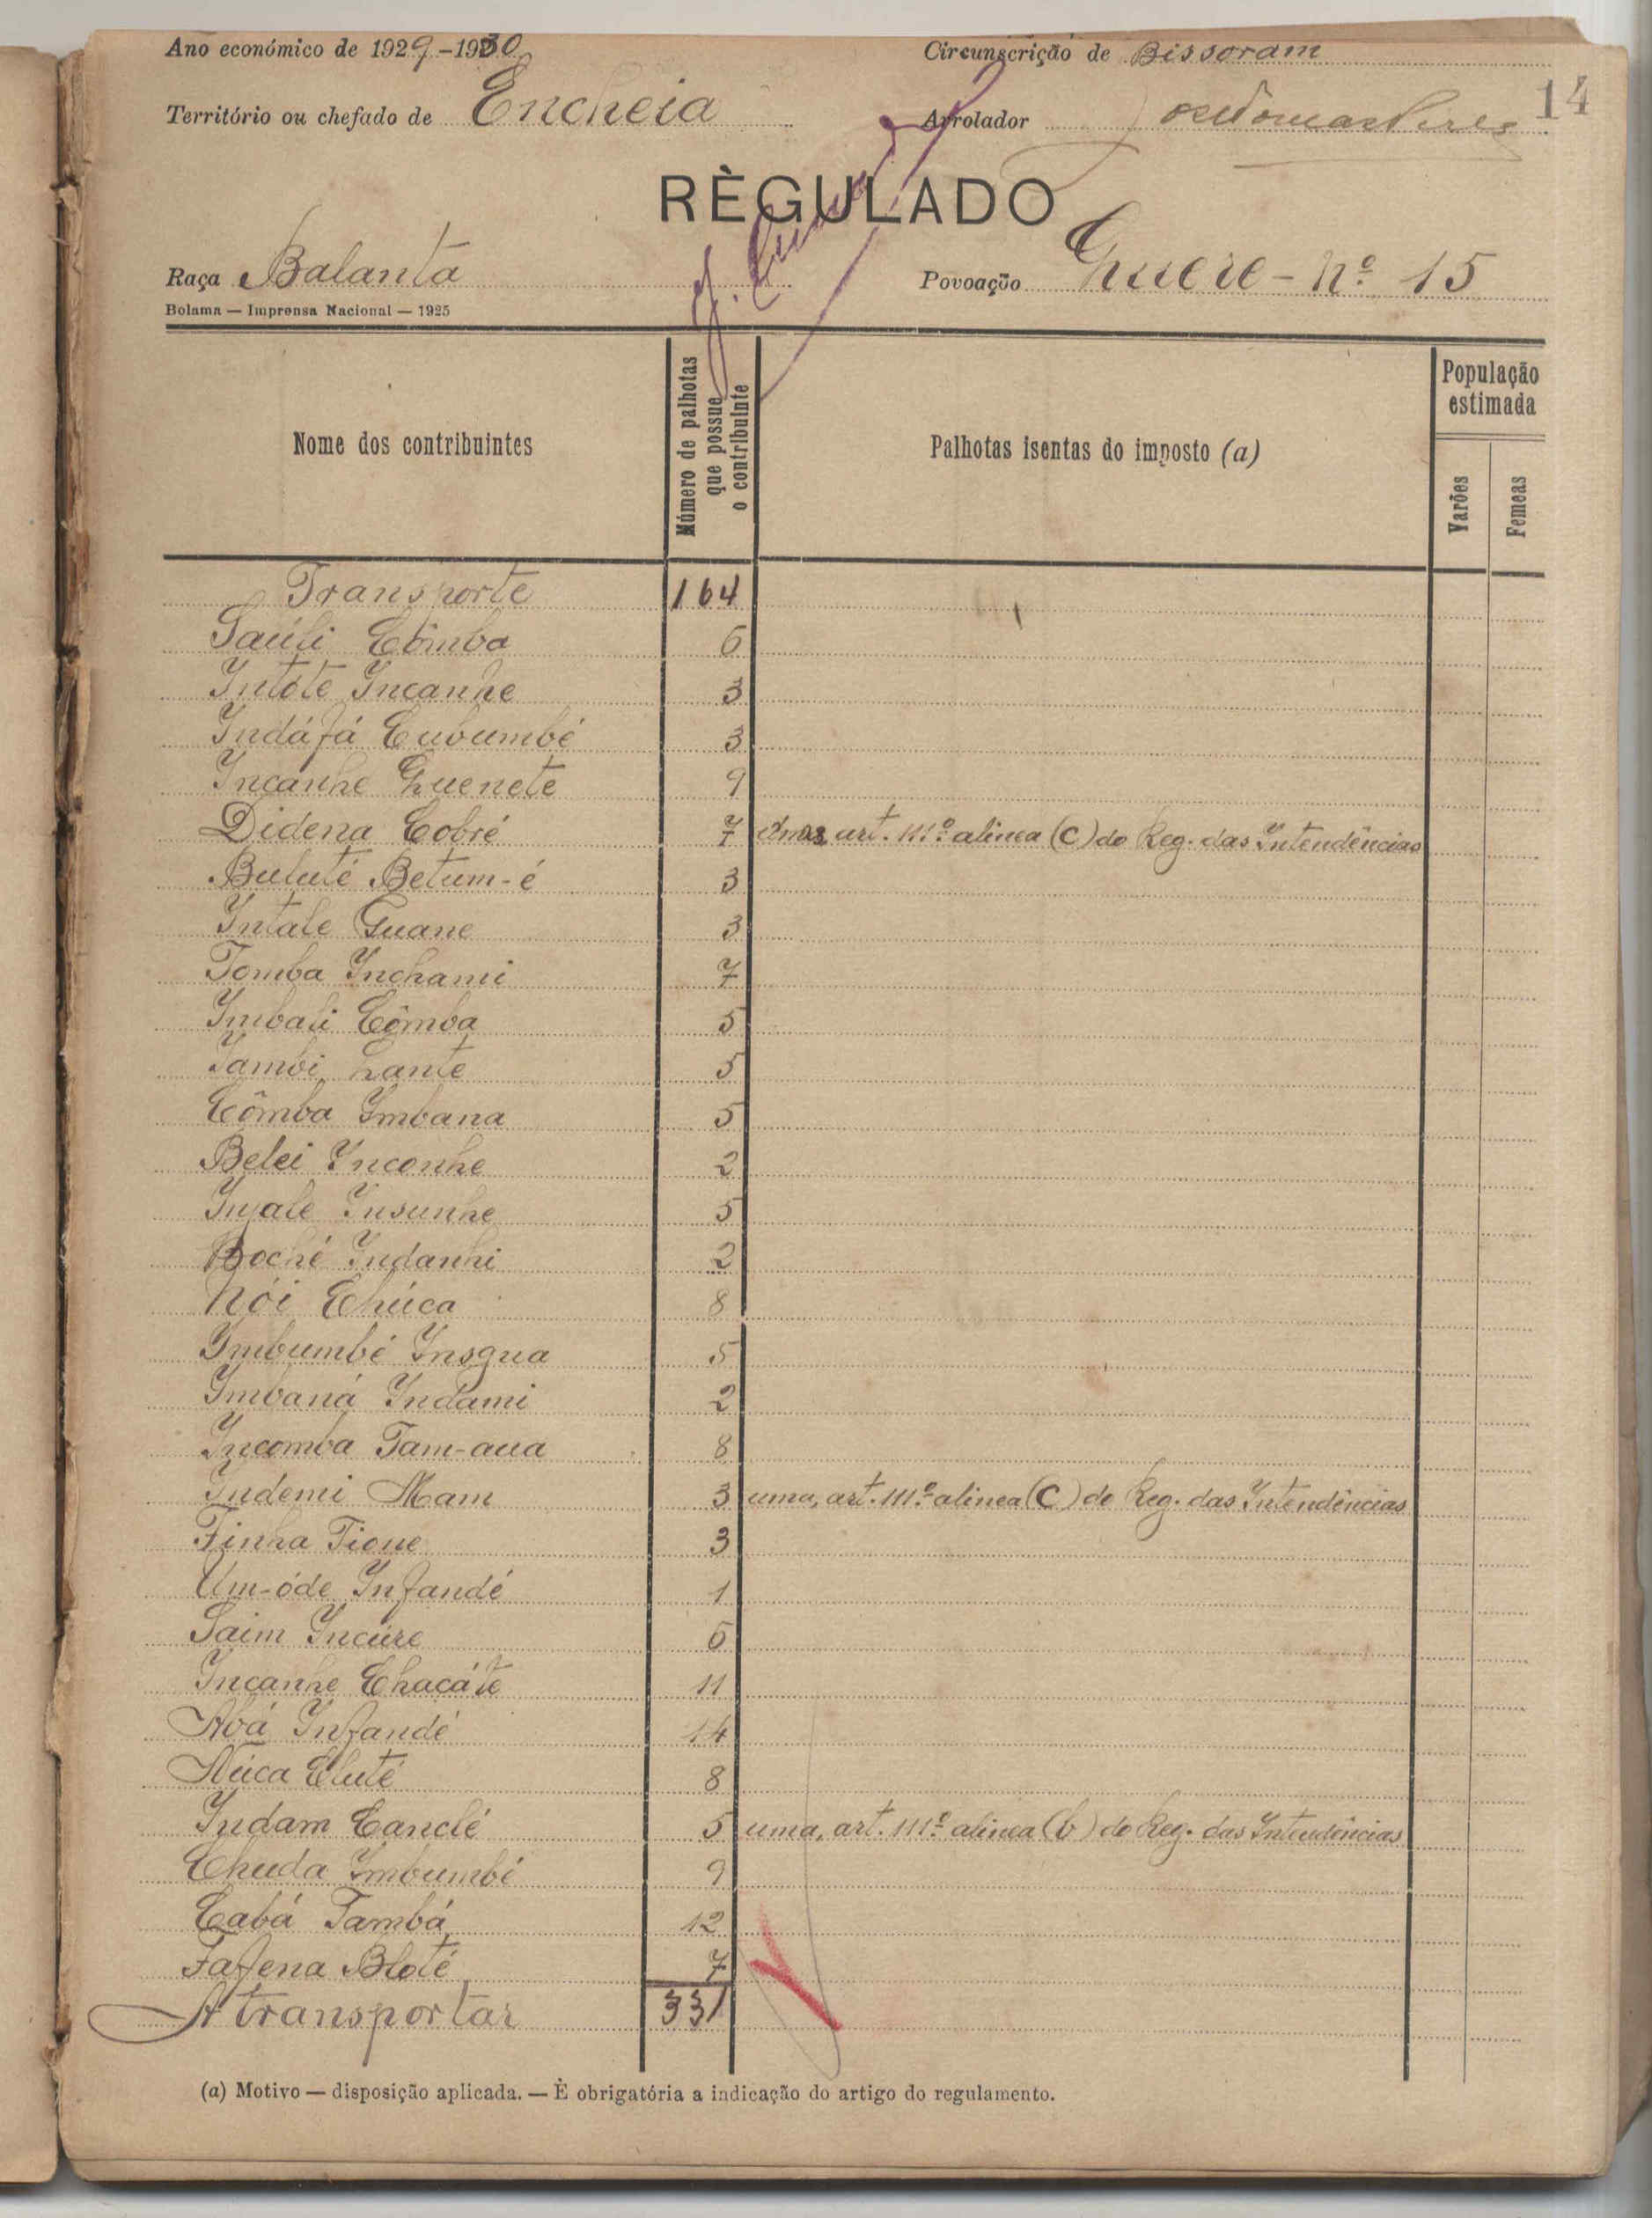 Ano económico de 1929-1930
Circunscrição de Bissoram
14
Território ou chefado de Encheia
Arrolador
RÈGULADO
Raça Balanta
Povoação Ghuere - Nº 15
Bolama — Imprensa Nacional — 1925
Nome dos contribuintes
Número de palhotas que possue o contribuinte
Palhotas isentas do imposto (a)
População estimada
Varões
Femeas
Transporte 164
Saúli Cômba 6
Intóte Incanhe 3
Indáfá Cubumbé 3
Incanhe Guenete 9
Didena Cobré 7 duas, art. 111º alinea (C) do Reg. das Intendências
Buluté Betum-é 3
Intale Guane 3
Tomba Inchami 7
Imbali Cômba 5
Tambi Lante 5
Cômba Imbana 5
Belei Inconhe 2
Injale Insunhe 5
Boché Indanhi 2
Nói Chúca 8
Imbumbé Insgua 5
Imbaná Indami 2
Incomba Tam-aua 8
Indemi Mam 3 uma, art. 111º alinea (C) do Reg. das Intendências
Finha Tione 3
Um-óde Infandé 1
Saim Incúre 6
Incanhe Chacáte 11
Abá Infandé 14
Núca Cluté 8
Indam Canclé 5 uma, art. 111º alinea (b) do Reg. das Intendências
Chuda Imbumbé 9
Cabá Tambá 12
Fafena Bloté 7
A transportar 331
(a) Motivo — disposição aplicada. — È obrigatória a indicação do artigo do regulamento.